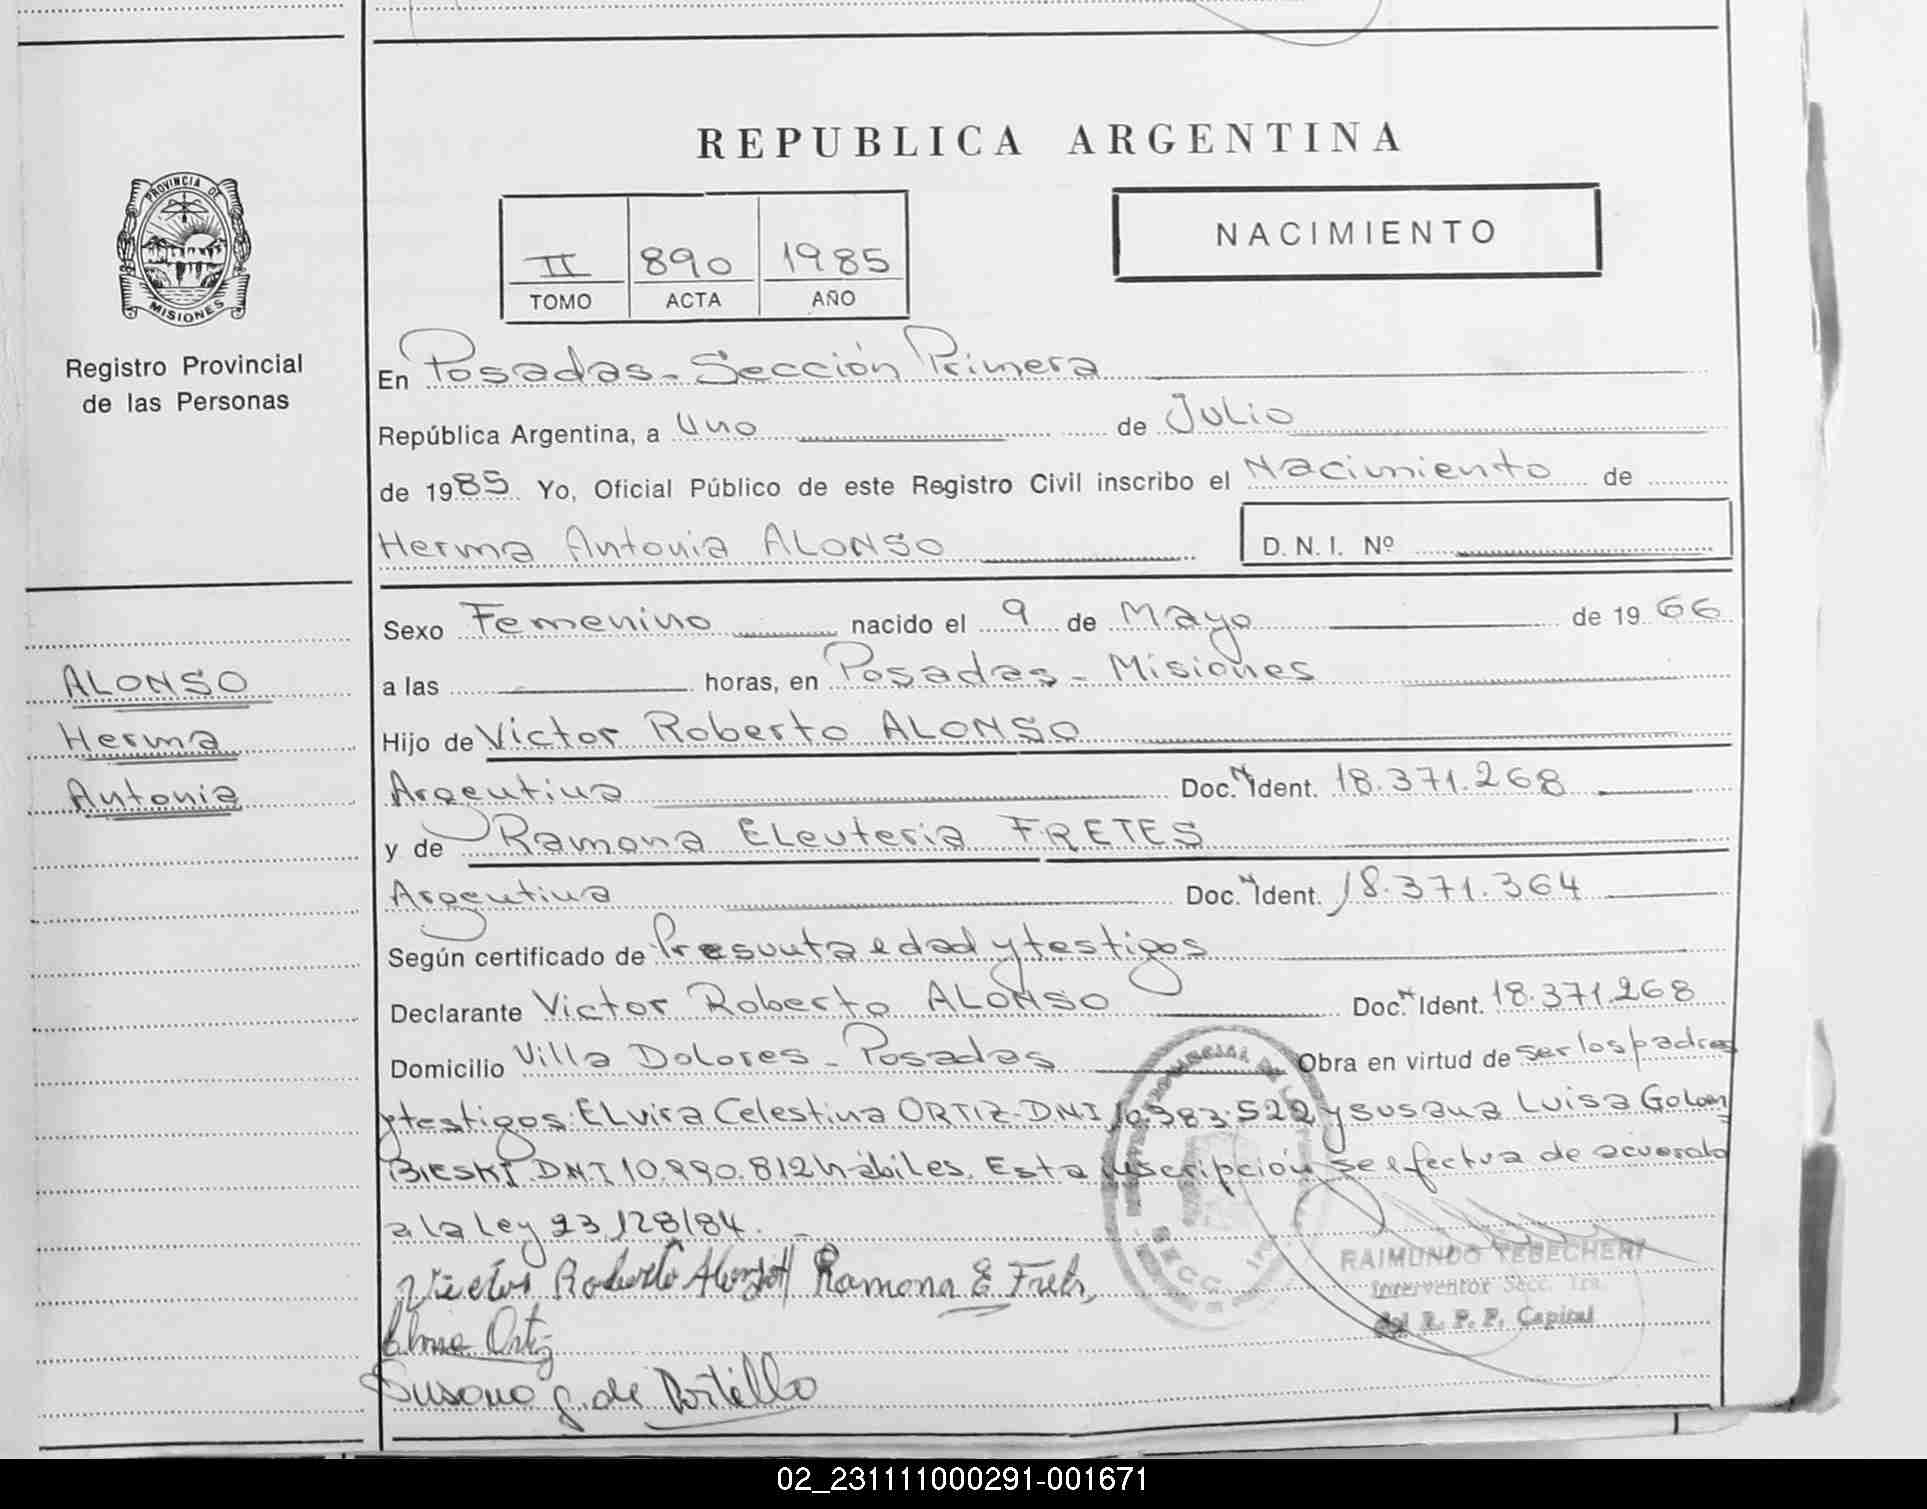 REPUBLICA ARGENTINA
PROVINCIA DE
MISIONES
Registro Provincial
de las Personas
II 890 1985
TOMO ACTA AÑO
NACIMIENTO
En Posadas - Sección Primera
República Argentina, a Uno de Julio
de 1985 Yo, Oficial Público de este Registro Civil inscribo el Nacimiento de
Herma Antonia ALONSO D.N.I. Nº
Sexo Femenino nacido el 9 de Mayo de 1966
a las horas, en Posadas - Misiones
Hijo de Victor Roberto ALONSO
Argentina Doc. N Ident. 18.371.268
y de Ramona Eleuteria FRETES
Argentina Doc. N Ident. 18.371.364
Según certificado de Presunta edad y testigos
Declarante Victor Roberto ALONSO Doc. N Ident. 18.371.268
Domicilio Villa Dolores - Posadas Obra en virtud de ser los padres
y testigos: Elvira Celestina ORTIZ - DNI 10.383.522 y Susana Luisa Golom
BIESKI DNI 10.990.812 hábiles. Esta inscripción se efectua de acuerdo
a la Ley 23.128/84.
Victor Roberto Ramona E Frets
Ortiz
Susana G. de Portillo
ALONSO
Herma
Antonia
SECC. 1ra
RAIMUNDO TEBECHERI
Interventor Secc. 1ra.
del R. P. P. Capital
02_231111000291-001671